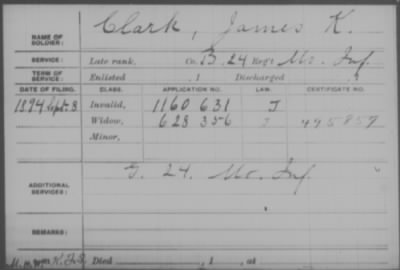 NAME OF SOLDIER: Clark, James K.
SERVICE: Late rank, Co. B, 24 Reg't Mo. Inf.
TERM OF SERVICE: Enlisted , 1 Discharged , 1
DATE OF FILING. CLASS. APPLICATION NO. LAW. CERTIFICATE NO.
1894 Sept. 8 Invalid, 1160 631 J
Widow, 628 356 J 495857
Minor,
ADDITIONAL SERVICES: G. 24. Mo. Inf.
REMARKS:
Died , 1 , at